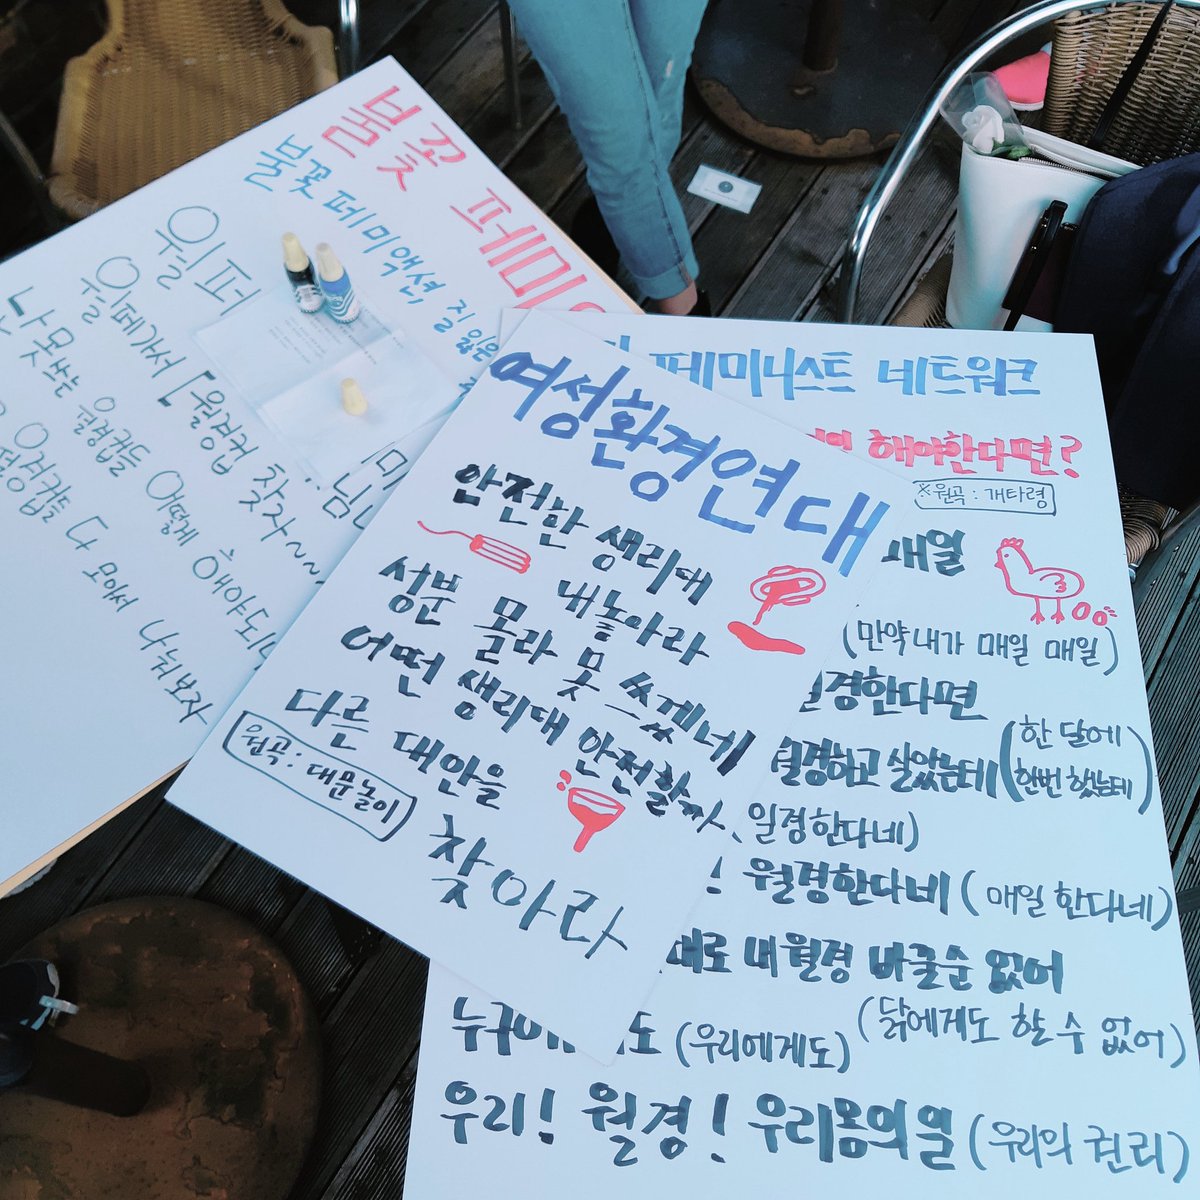 불꽃 페미
불꽃페미액션, 질 잃은
월퍼
월페가서 [월경컵 찾자~~
못쓰는 월경컵들 어떻게 해야되
월경컵들 다 모아서 나눠보자
여성환경연대
안전한 생리대
내놓아라
성분 몰라 못 쓰겠네
어떤 생리대 안전할까
다른 대안을
찾아라
원곡: 대문놀이
페미니스트 네트워크
해야한다면?
※원곡: 개타령
(만약 내가 매일 매일)
월경한다면
월경하고 살았는데 (한 달에 한번 했는데)
일경한다네)
! 월경한다네 (매일 한다네)
대로 내 월경 바꿀순 없어
(닭에게도 할 수 없어)
도 (우리에게도)
우리! 월경! 우리몸의일 (우리의 권리)